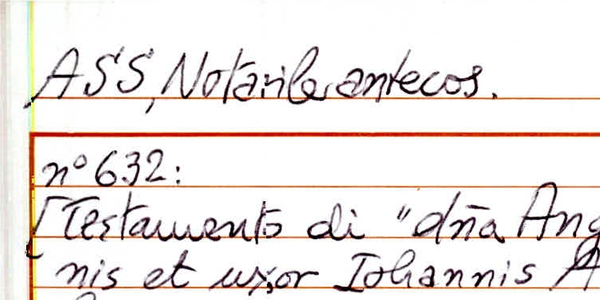 ASS, Notarile antecos.
n° 632:
[Testamento di "dña Ang
nis et uxor Iohannis A